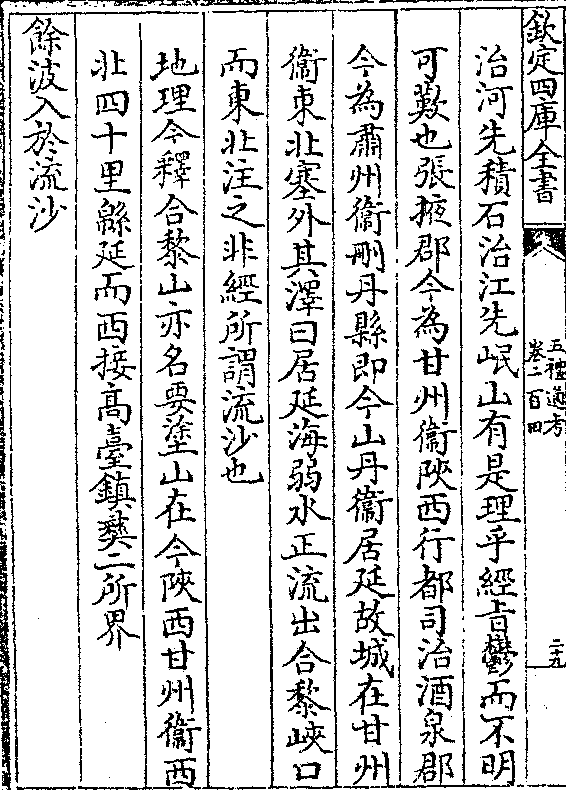 欽定四庫全書
五禮通考
卷二百四
二十九
治河先積石治江先岷山有是理乎經旨鬱而不明
可歎也張掖郡今為甘州衞陝西行都司治酒泉郡
今為肅州衞刪丹縣即今山丹衞居延故城在甘州
衞東北塞外其澤曰居延海弱水正流出合黎峽口
而東北注之非經所謂流沙也
地理今釋合黎山亦名要塗山在今陝西甘州衞西
北四十里緜延而西接高臺鎮彝二所界
餘波入於流沙